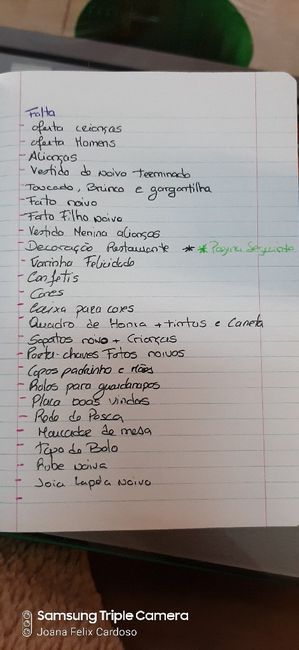 Falta
- oferta crianças
- oferta Homens
- Alianças
- Vestido do noivo terminado
- Toucado, Brinco e gargantilha
- Fato noivo
- Fato Filho noivo
- Vestido Menina alianças
- Decoração Restaurante * * Pagina Seguinte
- Varinha Felicidade
- Confetis
- Cones
- Caixa para cones
- Quadro de Honra + tintas e Caneta
- Sapatos noivo + Crianças
- Porta-chaves Fotos noivos
- Copos padrinho e Mães
- Rolos para guardanapos
- Placa boas vindas
- Rede de Pesca
- Marcador de mesa
- Topo de Bolo
- Robe noiva
- Joia lapela Noivo
Samsung Triple Camera
Joana Felix Cardoso